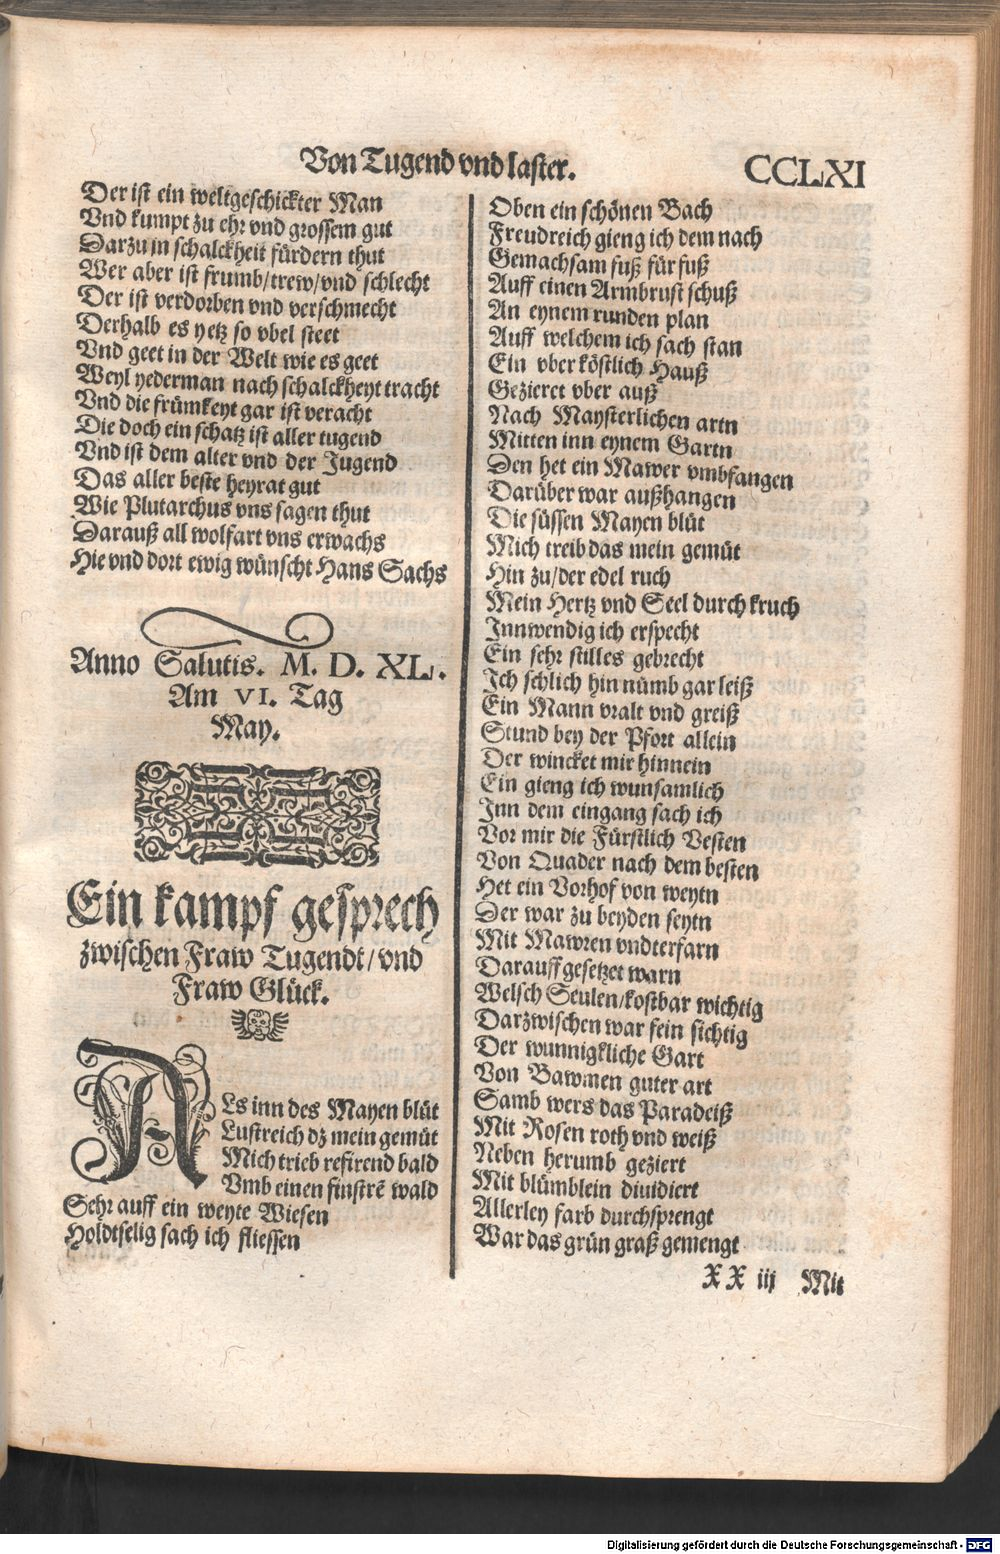 Von Tugend vnd laster.
CCLXI
Der ist ein weltgeschickter Man
Vnd kumpt zu ehr vnd grossem gut
Darzu in schalckheit fürdern thut
Wer aber ist frumb/trew/vnd schlecht
Der ist verdorben vnd verschmecht
Derhalb es yetz so vbel steet
Vnd geet in der Welt wie es geet
Weyl yederman nach schalckheyt tracht
Vnd die frümkeyt gar ist veracht
Die doch ein schatz ist aller tugend
Vnd ist dem alter vnd der Jugend
Das aller beste heyrat gut
Wie Plutarchus vns sagen thut
Darauß all wolfart vns erwachs
Hie vnd dort ewig wünscht Hans Sachs
Anno Salutis. M. D. XL.
Am VI. Tag
May.
Ein kampf gesprech
zwischen Fraw Tugendt/vnd
Fraw Glück.
ALs inn des Mayen blüt
Lustreich dz mein gemüt
Mich trieb refirend bald
Vmb einen finstrē wald
Sehr auff ein weyte Wiesen
Holdtselig sach ich fliessen
Oben ein schönen Bach
Freudreich gieng ich dem nach
Gemachsam fuß für fuß
Auff einen Armbrust schuß
An eynem runden plan
Auff welchem ich sach stan
Ein vber köstlich Hauß
Gezieret vber auß
Nach Maysterlichen artn
Mitten inn eynem Gartn
Den het ein Mawer vmbfangen
Darüber war außhangen
Die süssen Mayen blüt
Mich treib das mein gemüt
Hin zu/der edel ruch
Mein Hertz vnd Seel durch kruch
Innwendig ich erspecht
Ein sehr stilles gebrecht
Ich schlich hin nümb gar leiß
Ein Mann vralt vnd greiß
Stund bey der Pfort allein
Der wincket mir hinnein
Ein gieng ich wunsamlich
Inn dem eingang sach ich
Vor mir die Fürstlich Vesten
Von Quader nach dem besten
Het ein Vorhof von weytn
Der war zu beyden seytn
Mit Mawren vndterfarn
Darauff gesetzet warn
Welsch Seulen/kostbar wichtig
Darzwischen war fein sichtig
Der wunnigkliche Gart
Von Bawmen guter art
Samb wers das Paradeiß
Mit Rosen roth vnd weiß
Neben herumb geziert
Mit blümblein dividiert
Allerley farb durchsprengt
War das grün graß gemengt
XX iij Mit
Digitalisierung gefördert durch die Deutsche Forschungsgemeinschaft - DFG